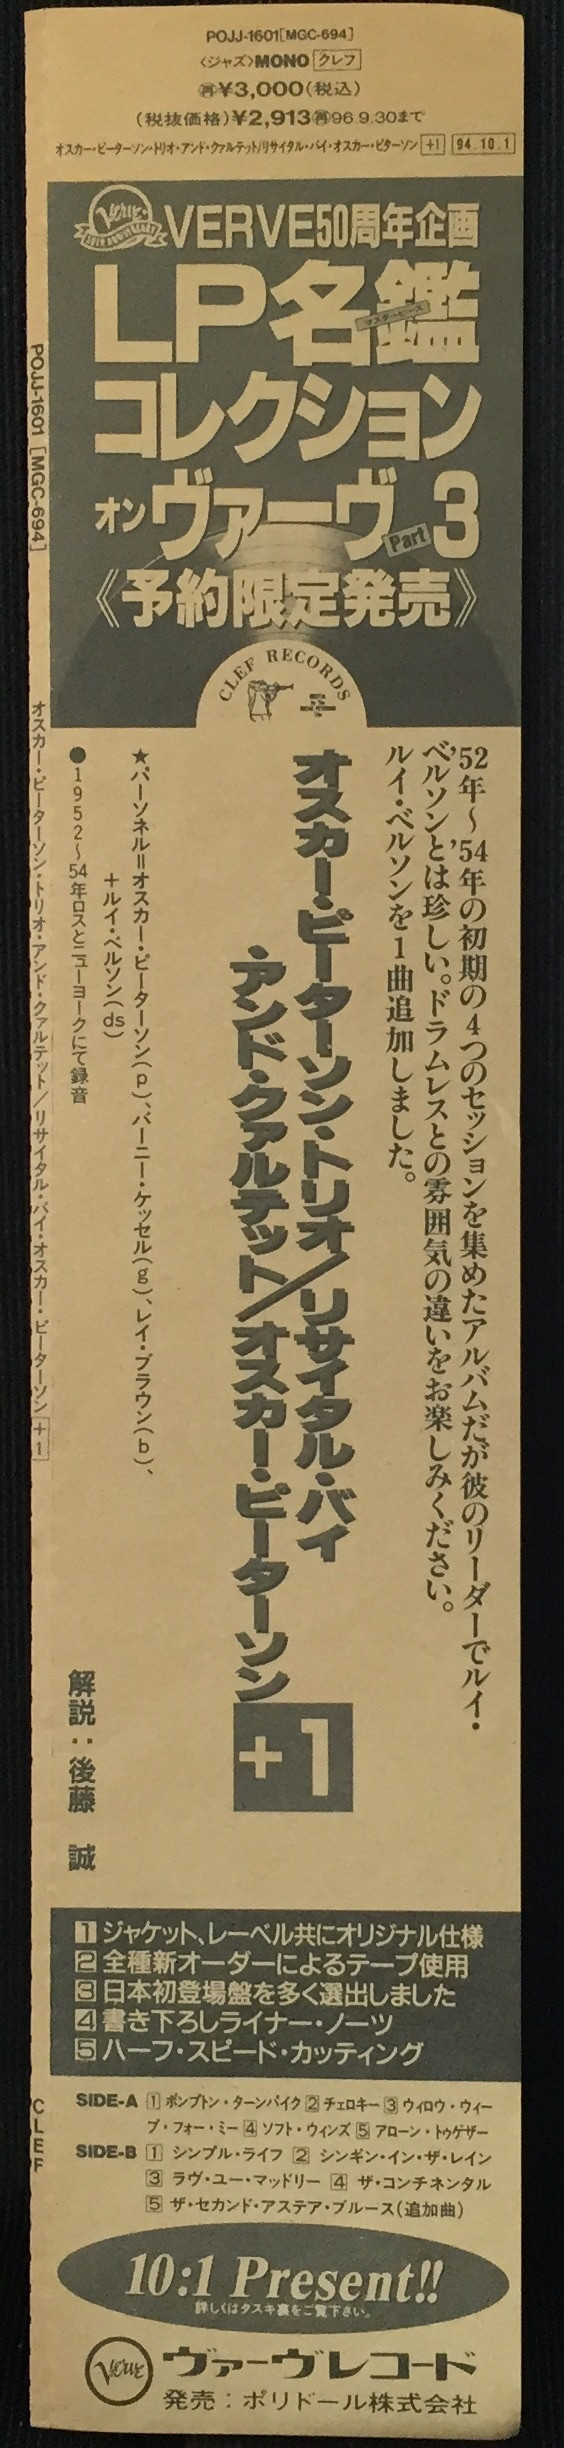 POJJ-1601[MGC-694]
〈ジャズ〉MONO クレフ
再¥3,000(税込)
(税抜価格)¥2,913再96.9.30まで
オスカー・ピーターソン・トリオ・アンド・クァルテット/リサイタル・バイ・オスカー・ピターソン +1 94.10.1
Verve
50TH ANNIVERSARY
VERVE50周年企画
LP名鑑
マスターピース
コレクション
オン ヴァーヴ Part 3
《予約限定発売》
CLEF RECORDS
'52年〜'54年の初期の4つのセッションを集めたアルバムだが彼のリーダーでルイ・
ベルソンとは珍しい。ドラムレスとの雰囲気の違いをお楽しみください。
ルイ・ベルソンを1曲追加しました。
オスカー・ピーターソン・トリオ/リサイタル・バイ
・アンド・クァルテット/オスカー・ピーターソン
+1
★パーソネル=オスカー・ピーターソン(p)、バーニー・ケッセル(g)、レイ・ブラウン(b)、
+ルイ・ベルソン(ds)
●1952〜54年ロスとニューヨークにて録音
解説:後藤 誠
POJJ-1601 [MGC-694]
オスカー・ピーターソン・トリオ・アンド・クァルテット/リサイタル・バイ・オスカー・ピーターソン +1
CLEF
1 ジャケット、レーベル共にオリジナル仕様
2 全種新オーダーによるテープ使用
3 日本初登場盤を多く選出しました
4 書き下ろしライナー・ノーツ
5 ハーフ・スピード・カッティング
SIDE-A 1 ポンプトン・ターンパイク 2 チェロキー 3 ウィロウ・ウィー
プ・フォー・ミー 4 ソフト・ウィンズ 5 アローン・トゥゲザー
SIDE-B 1 シンプル・ライフ 2 シンギン・イン・ザ・レイン
3 ラヴ・ユー・マッドリー 4 ザ・コンチネンタル
5 ザ・セカンド・アステア・ブルース(追加曲)
10:1 Present!!
詳しくはタスキ裏をご覧下さい。
Verve
ヴァーヴレコード
発売:ポリドール株式会社